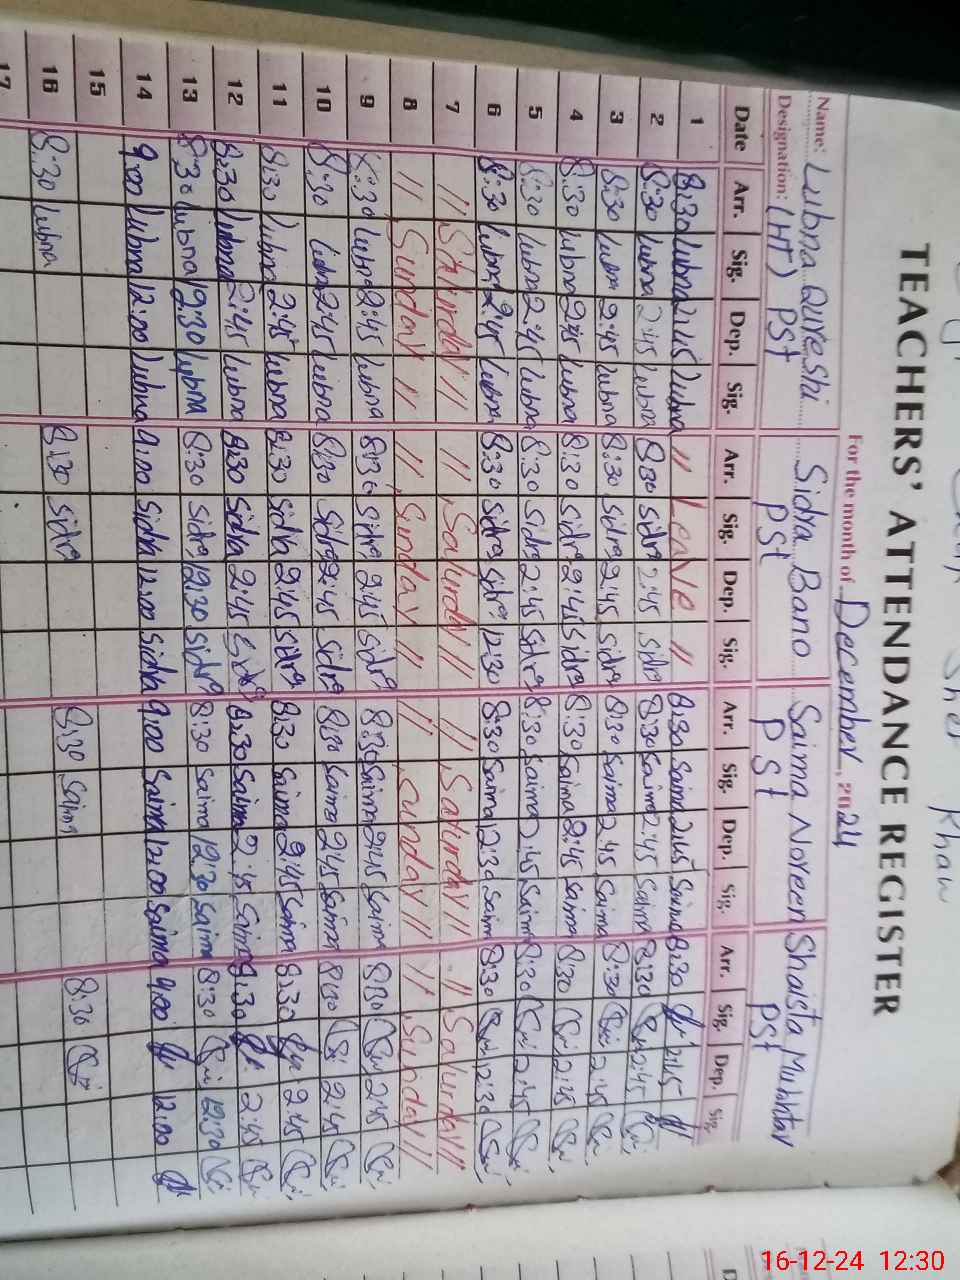 Sher Khan
TEACHERS' ATTENDANCE REGISTER
For the month of December, 2024
Name: Lubna Qureshi Sidra Bano Saima Noreen Shaista Mukhtar
Designation: (HT) PSt PSt PSt PSt
Date Arr. Sig. Dep. Sig. Arr. Sig. Dep. Sig. Arr. Sig. Dep. Sig. Arr. Sig. Dep. Sig.
1 8:30 lubna 2:45 lubna // Leave // 8:30 Saima 2:45 Saima 8:30 2:45
2 8:30 lubna 2:45 lubna 8:30 Sidra 2:45 Sidra 8:30 Saima 2:45 Saima 8:30 2:45
3 8:30 lubna 2:45 lubna 8:30 Sidra 2:45 Sidra 8:30 Saima 2:45 Saima 8:30 2:45
4 8:30 lubna 2:45 lubna 8:30 Sidra 2:45 Sidra 8:30 Saima 2:45 Saima 8:30 2:45
5 8:30 lubna 2:45 lubna 8:30 Sidra 2:45 Sidra 8:30 Saima 2:45 Saima 8:30 2:45
6 8:30 lubna 2:45 lubna 8:30 Sidra Sidra 12:30 8:30 Saima 12:30 Saima 8:30 12:30
7 // Saturday // // Saturday // // Saturday // // Saturday //
8 // Sunday // // Sunday // // Sunday // // Sunday //
9 8:30 lubna 2:45 lubna 8:30 Sidra 2:45 Sidra 8:30 Saima 2:45 Saima 8:30 2:45
10 8:30 lubna 2:45 lubna 8:30 Sidra 2:45 Sidra 8:30 Saima 2:45 Saima 8:30 2:45
11 8:30 lubna 2:45 lubna 8:30 Sidra 2:45 Sidra 8:30 Saima 2:45 Saima 8:30 2:45
12 8:30 lubna 2:45 lubna 8:30 Sidra 2:45 Sidra 8:30 Saima 2:45 Saima 8:30 2:45
13 8:30 lubna 12:30 lubna 8:30 Sidra 12:30 Sidra 8:30 Saima 12:30 Saima 8:30 12:30
14 9:00 lubna 12:00 lubna 9:00 Sidra 12:00 Sidra 9:00 Saima 12:00 Saima 9:00 12:00
15
16 8:30 lubna 8:30 Sidra 8:30 Saima 8:30
17
16-12-24 12:30